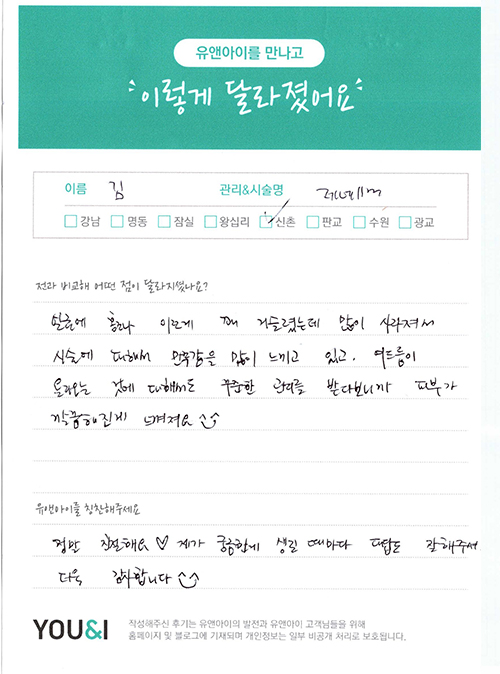 유앤아이를 만나고
이렇게 달라졌어요
이름 김 관리&시술명
강남 명동 잠실 왕십리 신촌 판교 수원 광교
전과 비교해 어떤 점이 달라지셨나요?
꽤 거슬렸는데 많이 사라져서
시술에 대해서 만족감을 많이 느끼고 있고, 여드름이
올라오는 것에 대해서도 꾸준한 관리를 받다보니까 피부가
깔끔해진게 느껴져요
유앤아이를 칭찬해주세요
정말 친절해요 ♡ 제가 궁금한게 생길 때마다 대답도 잘해주셔
더욱 감사합니다
YOU&I
작성해주신 후기는 유앤아이의 발전과 유앤아이 고객님들을 위해
홈페이지 및 블로그에 기재되며 개인정보는 일부 비공개 처리로 보호됩니다.